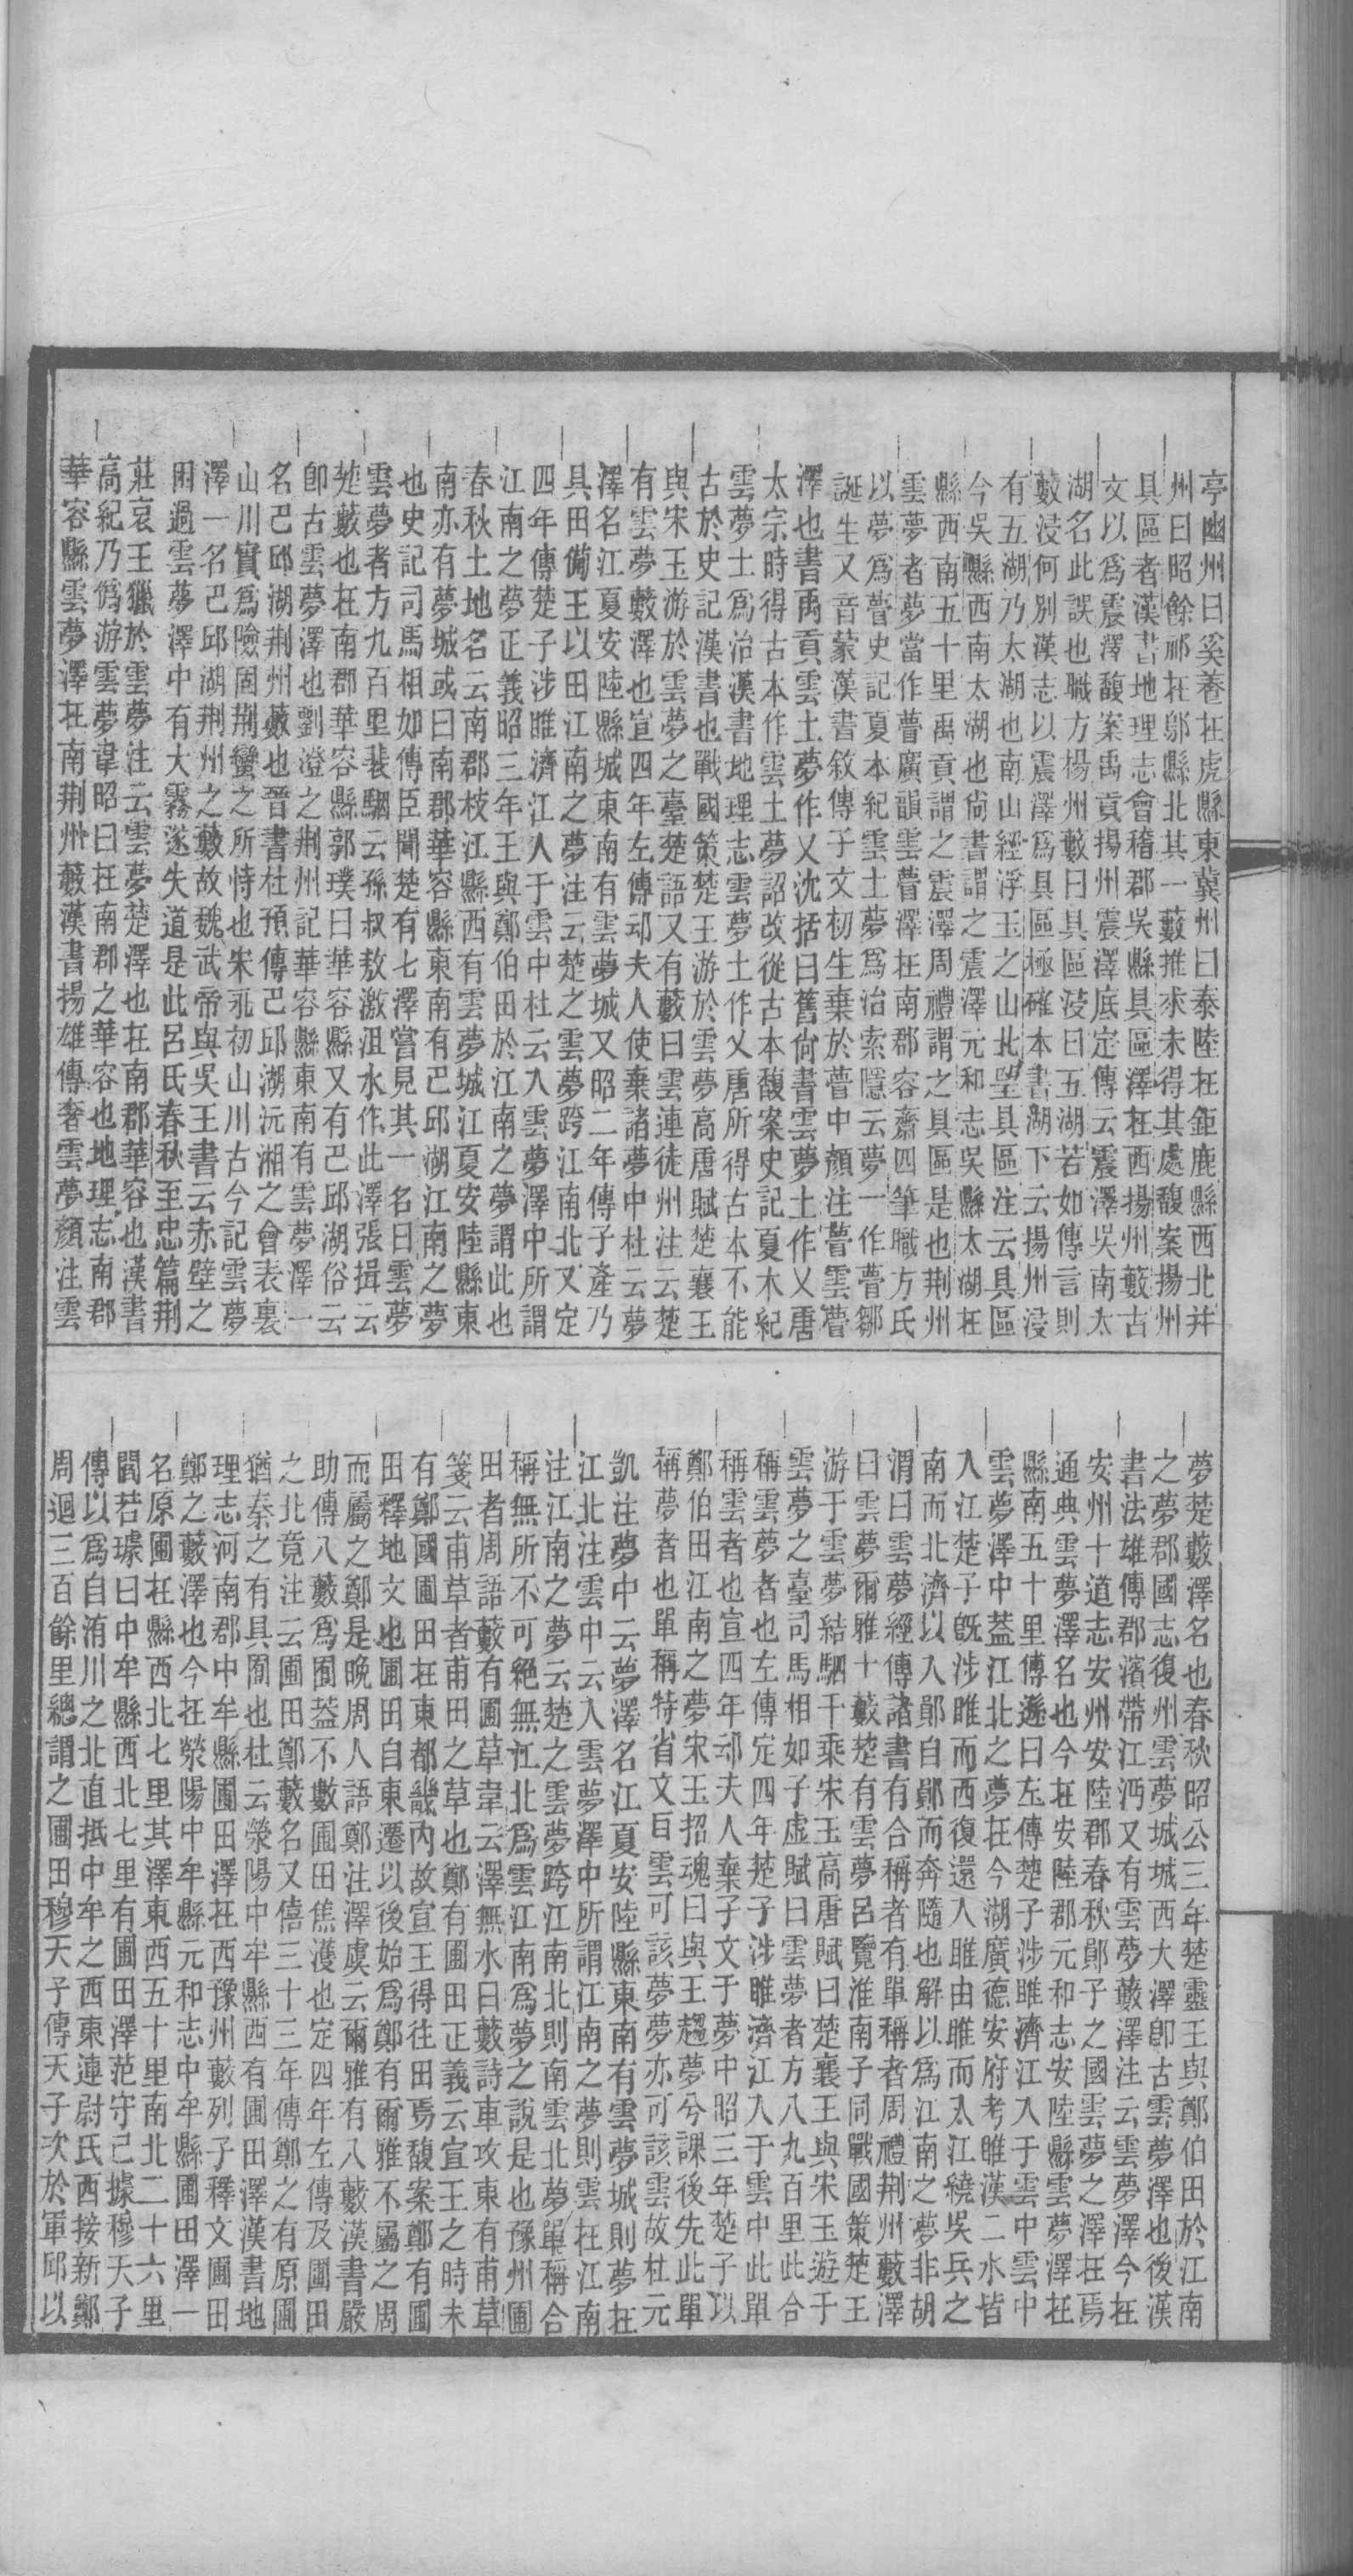 亭幽州曰奚養在虎縣東冀州曰泰陸在鉅鹿縣西北幷
州曰昭餘祁在鄔縣北其一藪推求未得其處馥案揚州
具區者漢書地理志會稽郡吳縣具區澤在西揚州藪古
文以爲震澤馥案禹貢揚州震澤底定傳云震澤吳南太
湖名此誤也職方揚州藪曰具區浸曰五湖若如傳言則
藪浸何別漢志以震澤爲具區極確本書湖下云揚州浸
有五湖乃太湖也南山經浮玉之山北望具區注云具區
今吳縣西南太湖也尙書謂之震澤元和志吳縣太湖在
縣西南五十里禹貢謂之震澤周禮謂之具區是也荆州
雲夢者夢當作瞢廣韻雲瞢澤在南郡容齋四筆職方氏
以夢爲瞢史記夏本紀雲土夢爲治索隱云夢一作瞢鄒
誕生又音蒙漢書敘傳子文初生棄於瞢中顏注瞢雲瞢
澤也書禹貢雲土夢作乂沈括曰舊尙書雲夢土作乂唐
太宗時得古本作雲土夢詔改從古本馥案史記夏本紀
雲夢土爲治漢書地理志雲夢土作乂唐所得古本不能
古於史記漢書也戰國策楚王游於雲夢高唐賦楚襄王
與宋玉游於雲夢之臺楚語又有藪曰雲連徒州注云楚
有雲夢藪澤也宣四年左傳䢵夫人使棄諸夢中杜云夢
澤名江夏安陸縣城東南有雲夢城又昭二年傳子產乃
具田備王以田江南之夢注云楚之雲夢跨江南北又定
四年傳楚子涉睢濟江入于雲中杜云入雲夢澤中所謂
江南之夢正義昭三年王與鄭伯田於江南之夢謂此也
春秋土地名云南郡枝江縣西有雲夢城江夏安陸縣東
南亦有夢城或曰南郡華容縣東南有巴邱湖江南之夢
也史記司馬相如傳臣聞楚有七澤嘗見其一名曰雲夢
雲夢者方九百里裴駰云孫叔敖激沮水作此澤張揖云
楚藪也在南郡華容縣郭璞曰華容縣又有巴邱湖俗云
卽古雲夢澤也劉澄之荆州記華容縣東南有雲夢澤一
名巴邱湖荆州藪也晉書杜預傳巴邱湖沅湘之會表裏
山川實爲險固荆蠻之所恃也宋永初山川古今記雲夢
澤一名巴邱湖荆州之藪故魏武帝與吳王書云赤壁之
困過雲夢澤中有大霧遂失道是此呂氏春秋至忠篇荆
莊哀王獵於雲夢注云雲夢楚澤也在南郡華容也漢書
高紀乃僞游雲夢韋昭曰在南郡之華容也地理志南郡
華容縣雲夢澤在南荆州藪漢書揚雄傳奢雲夢顏注雲
夢楚藪澤名也春秋昭公三年楚靈王與鄭伯田於江南
之夢郡國志復州雲夢城城西大澤卽古雲夢澤也後漢
書法雄傳郡濱帶江沔又有雲夢藪澤注云雲夢澤今在
安州十道志安州安陸郡春秋鄖子之國雲夢之澤在焉
通典雲夢澤名也今在安陸郡元和志安陸縣雲夢澤在
縣南五十里傳遜曰左傳楚子涉睢濟江入于雲中雲中
雲夢澤中葢江北之夢在今湖廣德安府考睢漢二水皆
入江楚子既涉睢而西復還入睢由睢而入江繞吳兵之
南而北濟以入鄖自鄖而奔隨也解以爲江南之夢非胡
渭曰雲夢經傳諸書有合稱者有單稱者周禮荆州藪澤
曰雲夢爾雅十藪楚有雲夢呂覽淮南子同戰國策楚王
游于雲夢結駟千乘宋玉高唐賦曰楚襄王與宋玉遊于
雲夢之臺司馬相如子虛賦曰雲夢者方八九百里此合
稱雲夢者也左傳定四年楚子涉睢濟江入于雲中此單
稱雲者也宣四年䢵夫人棄子文于夢中昭三年楚子以
鄭伯田江南之夢宋玉招魂曰與王趨夢兮課後先此單
稱夢者也單稱特省文㠯雲可該夢夢亦可該雲故杜元
凱注夢中云夢澤名江夏安陸縣東南有雲夢城則夢在
江北注雲中云入雲夢澤中所謂江南之夢則雲在江南
注江南之夢云楚之雲夢跨江南北則南雲北夢單稱合
稱無所不可絕無江北爲雲江南爲夢之說是也豫州圃
田者周語藪有圃草韋云澤無水曰藪詩車攻東有甫草
箋云甫草者甫田之草也鄭有圃田正義云宣王之時未
有鄭國圃田在東都畿內故宣王得往田焉馥案鄭有圃
田釋地文也圃田自東遷以後始爲鄭有爾雅不屬之周
而屬之鄭是晚周人語鄭注澤虞云爾雅有八藪漢書嚴
助傳八藪爲囿葢不數圃田焦濩也定四年左傳及圃田
之北竟注云圃田鄭藪名又僖三十三年傳鄭之有原圃
猶秦之有具囿也杜云滎陽中牟縣西有圃田澤漢書地
理志河南郡中牟縣圃田澤在西豫州藪列子釋文圃田
鄭之藪澤也今在滎陽中牟縣元和志中牟縣圃田澤一
名原圃在縣西北七里其澤東西五十里南北二十六里
閻若璩曰中牟縣西北七里有圃田澤范守己據穆天子
傳以爲自洧川之北直抵中牟之西東連尉氏西接新鄭
周迴三百餘里總謂之圃田穆天子傳天子次於軍邱以